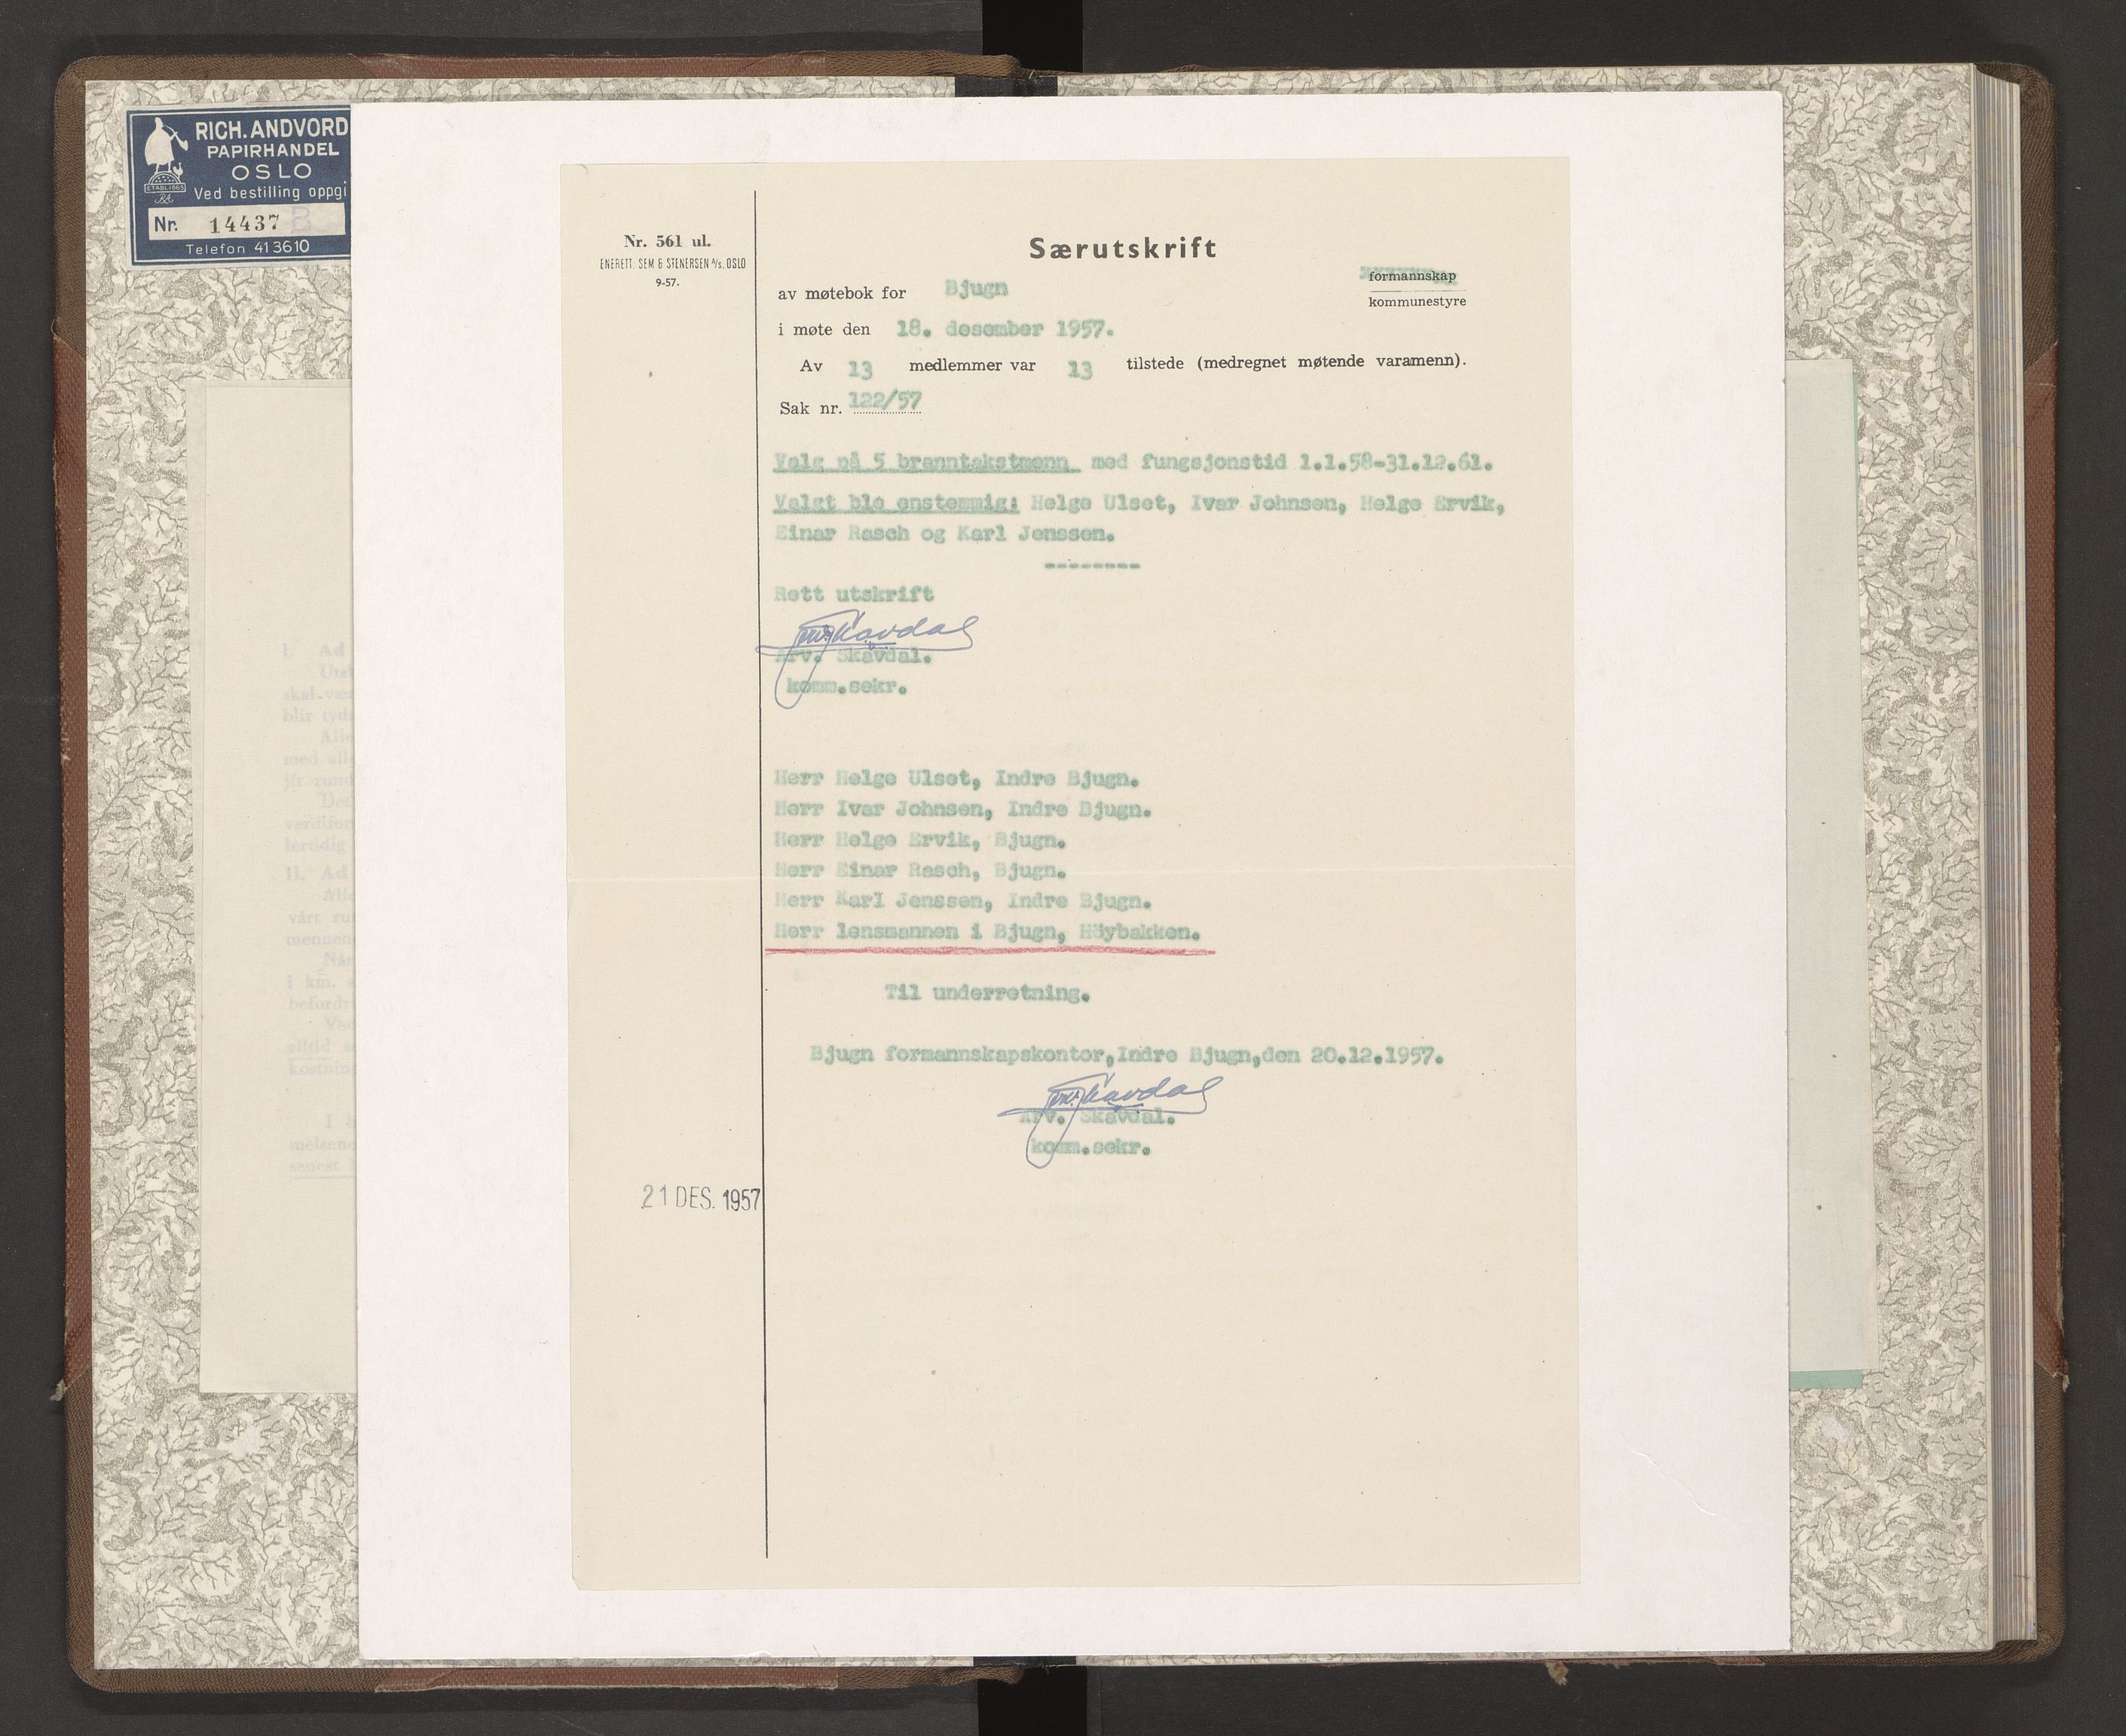 RICH. ANDVORD
PAPIRHANDEL
OSLO
ETABL. 1865
Ved bestilling oppgi
Nr. 14437 B
Telefon 413610
Nr. 561 ul.
ENERETT. SEM & STENERSEN A/S. OSLO
9-57.
Særutskrift
av møtebok for Bjugn
formannskap
kommunestyre
i møte den 18. desember 1957.
Av 13 medlemmer var 13 tilstede (medregnet møtende varamenn).
Sak nr. 122/57
Valg på 5 branntakstmenn med fungsjonstid 1.1.58-31.12.61.
Valgt ble enstemmig: Helge Ulset, Ivar Johnsen, Helge Ervik,
Einar Rasch og Karl Jenssen.
--------
Rett utskrift
Arv. Skavdal
Arv. Skavdal.
komm.sekr.
Herr Helge Ulset, Indre Bjugn.
Herr Ivar Johnsen, Indre Bjugn.
Herr Helge Ervik, Bjugn.
Herr Einar Rasch, Bjugn.
Herr Karl Jenssen, Indre Bjugn.
Herr lensmannen i Bjugn, Höybakken.
Til underretning.
Bjugn formannskapskontor,Indre Bjugn,den 20.12.1957.
Arv. Skavdal
Arv. Skavdal.
komm.sekr.
21 DES. 1957
I. Ad
skal
blir
Alle
med
jfr.
lertidig
II. Ad
Alle
vårt
Når
i km.
alltid
I
senest